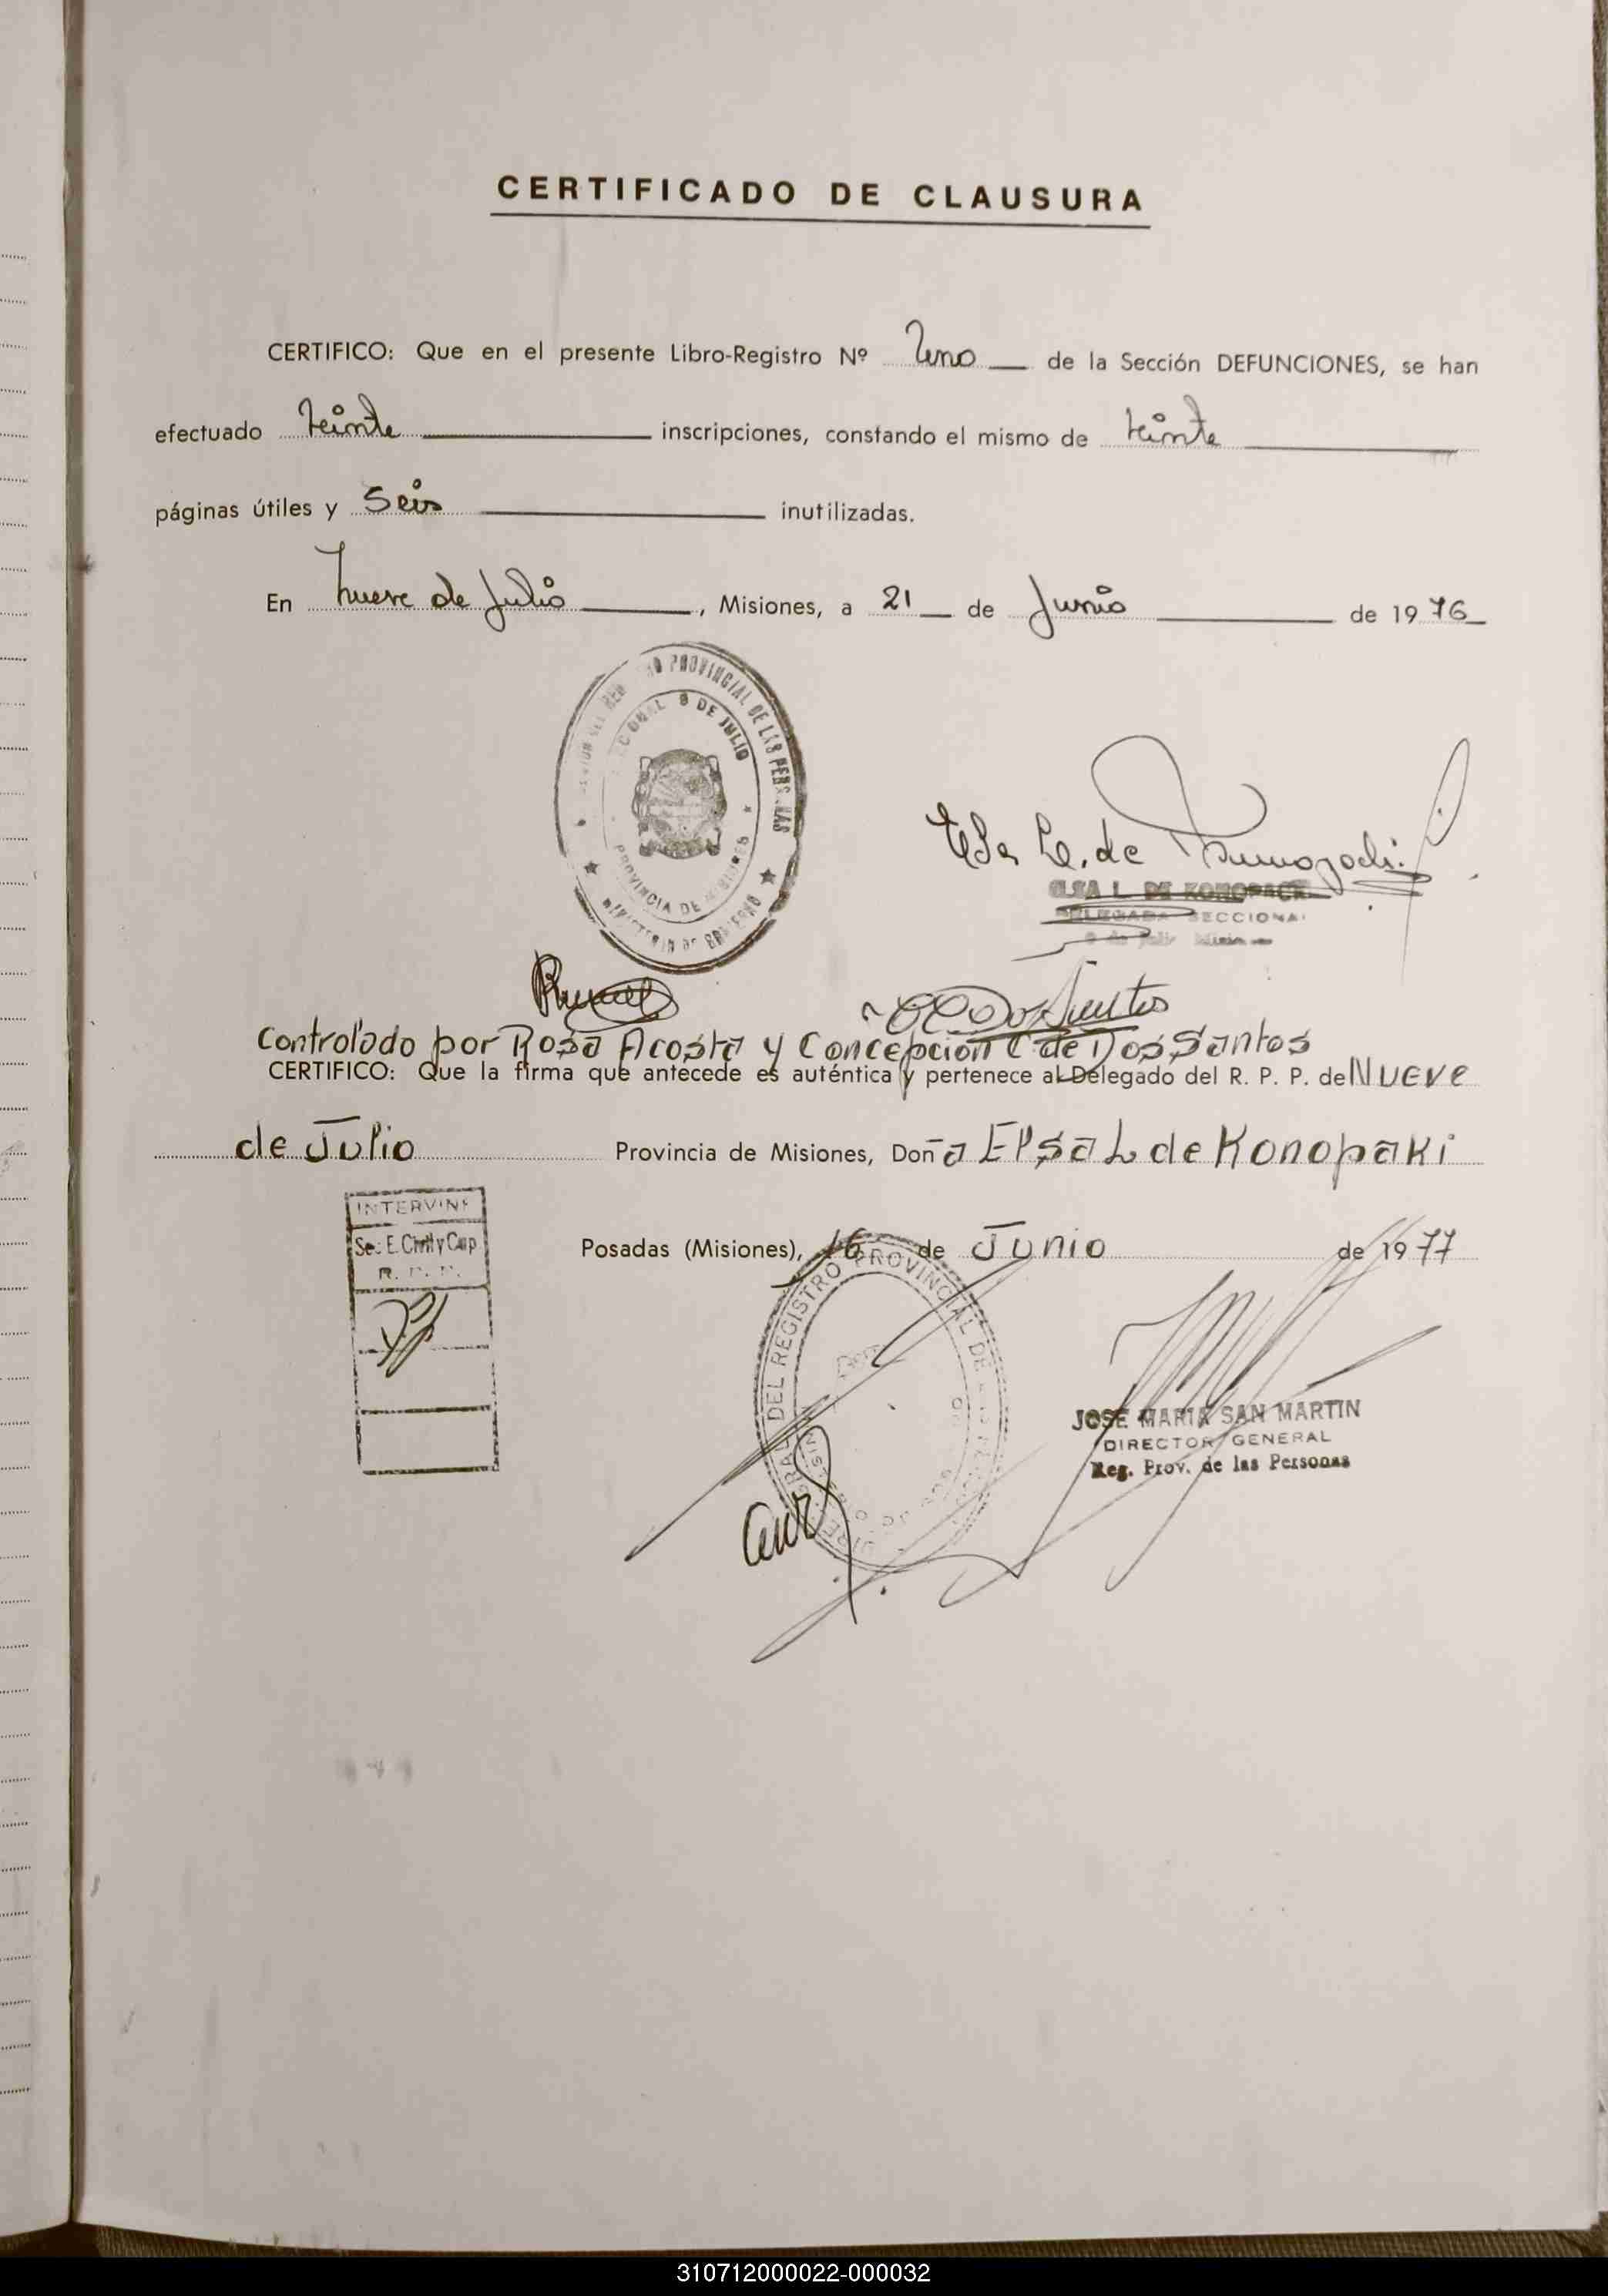 CERTIFICADO DE CLAUSURA
CERTIFICO: Que en el presente Libro-Registro Nº Uno de la Sección DEFUNCIONES, se han
efectuado Veinte inscripciones, constando el mismo de Veinte
páginas útiles y Seis inutilizadas.
En Nueve de Julio, Misiones, a 21 de Junio de 1976
PROVINCIAL DE LAS PERSONAS
9 DE JULIO
PROVINCIA DE MISIONES
Elsa L. de
ELSA L. DE KONOPACKI
DELEGADA SECCIONAL
9 de Julio Misiones
Controlado por Rosa Acosta y Concepcion C de Dos Santos
CERTIFICO: Que la firma que antecede es auténtica y pertenece al Delegado del R. P. P. de Nueve
de Julio Provincia de Misiones, Doña Elsa L de Konopaki
INTERVINE
Sec. E. Civil y Cap
R. P. P.
Posadas (Misiones), 16 de Junio de 1977
DEL REGISTRO PROVINCIAL DE
JOSE MARIA SAN MARTIN
DIRECTOR GENERAL
Reg. Prov. de las Personas
310712000022-000032